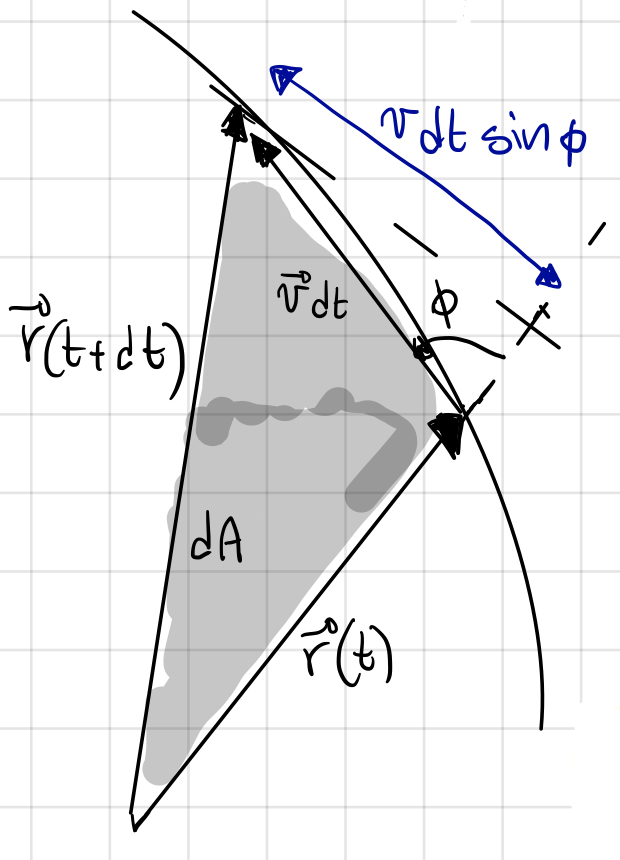 v dt sin ϕ
v⃗ dt
ϕ
r⃗(t+dt)
dA
r⃗(t)